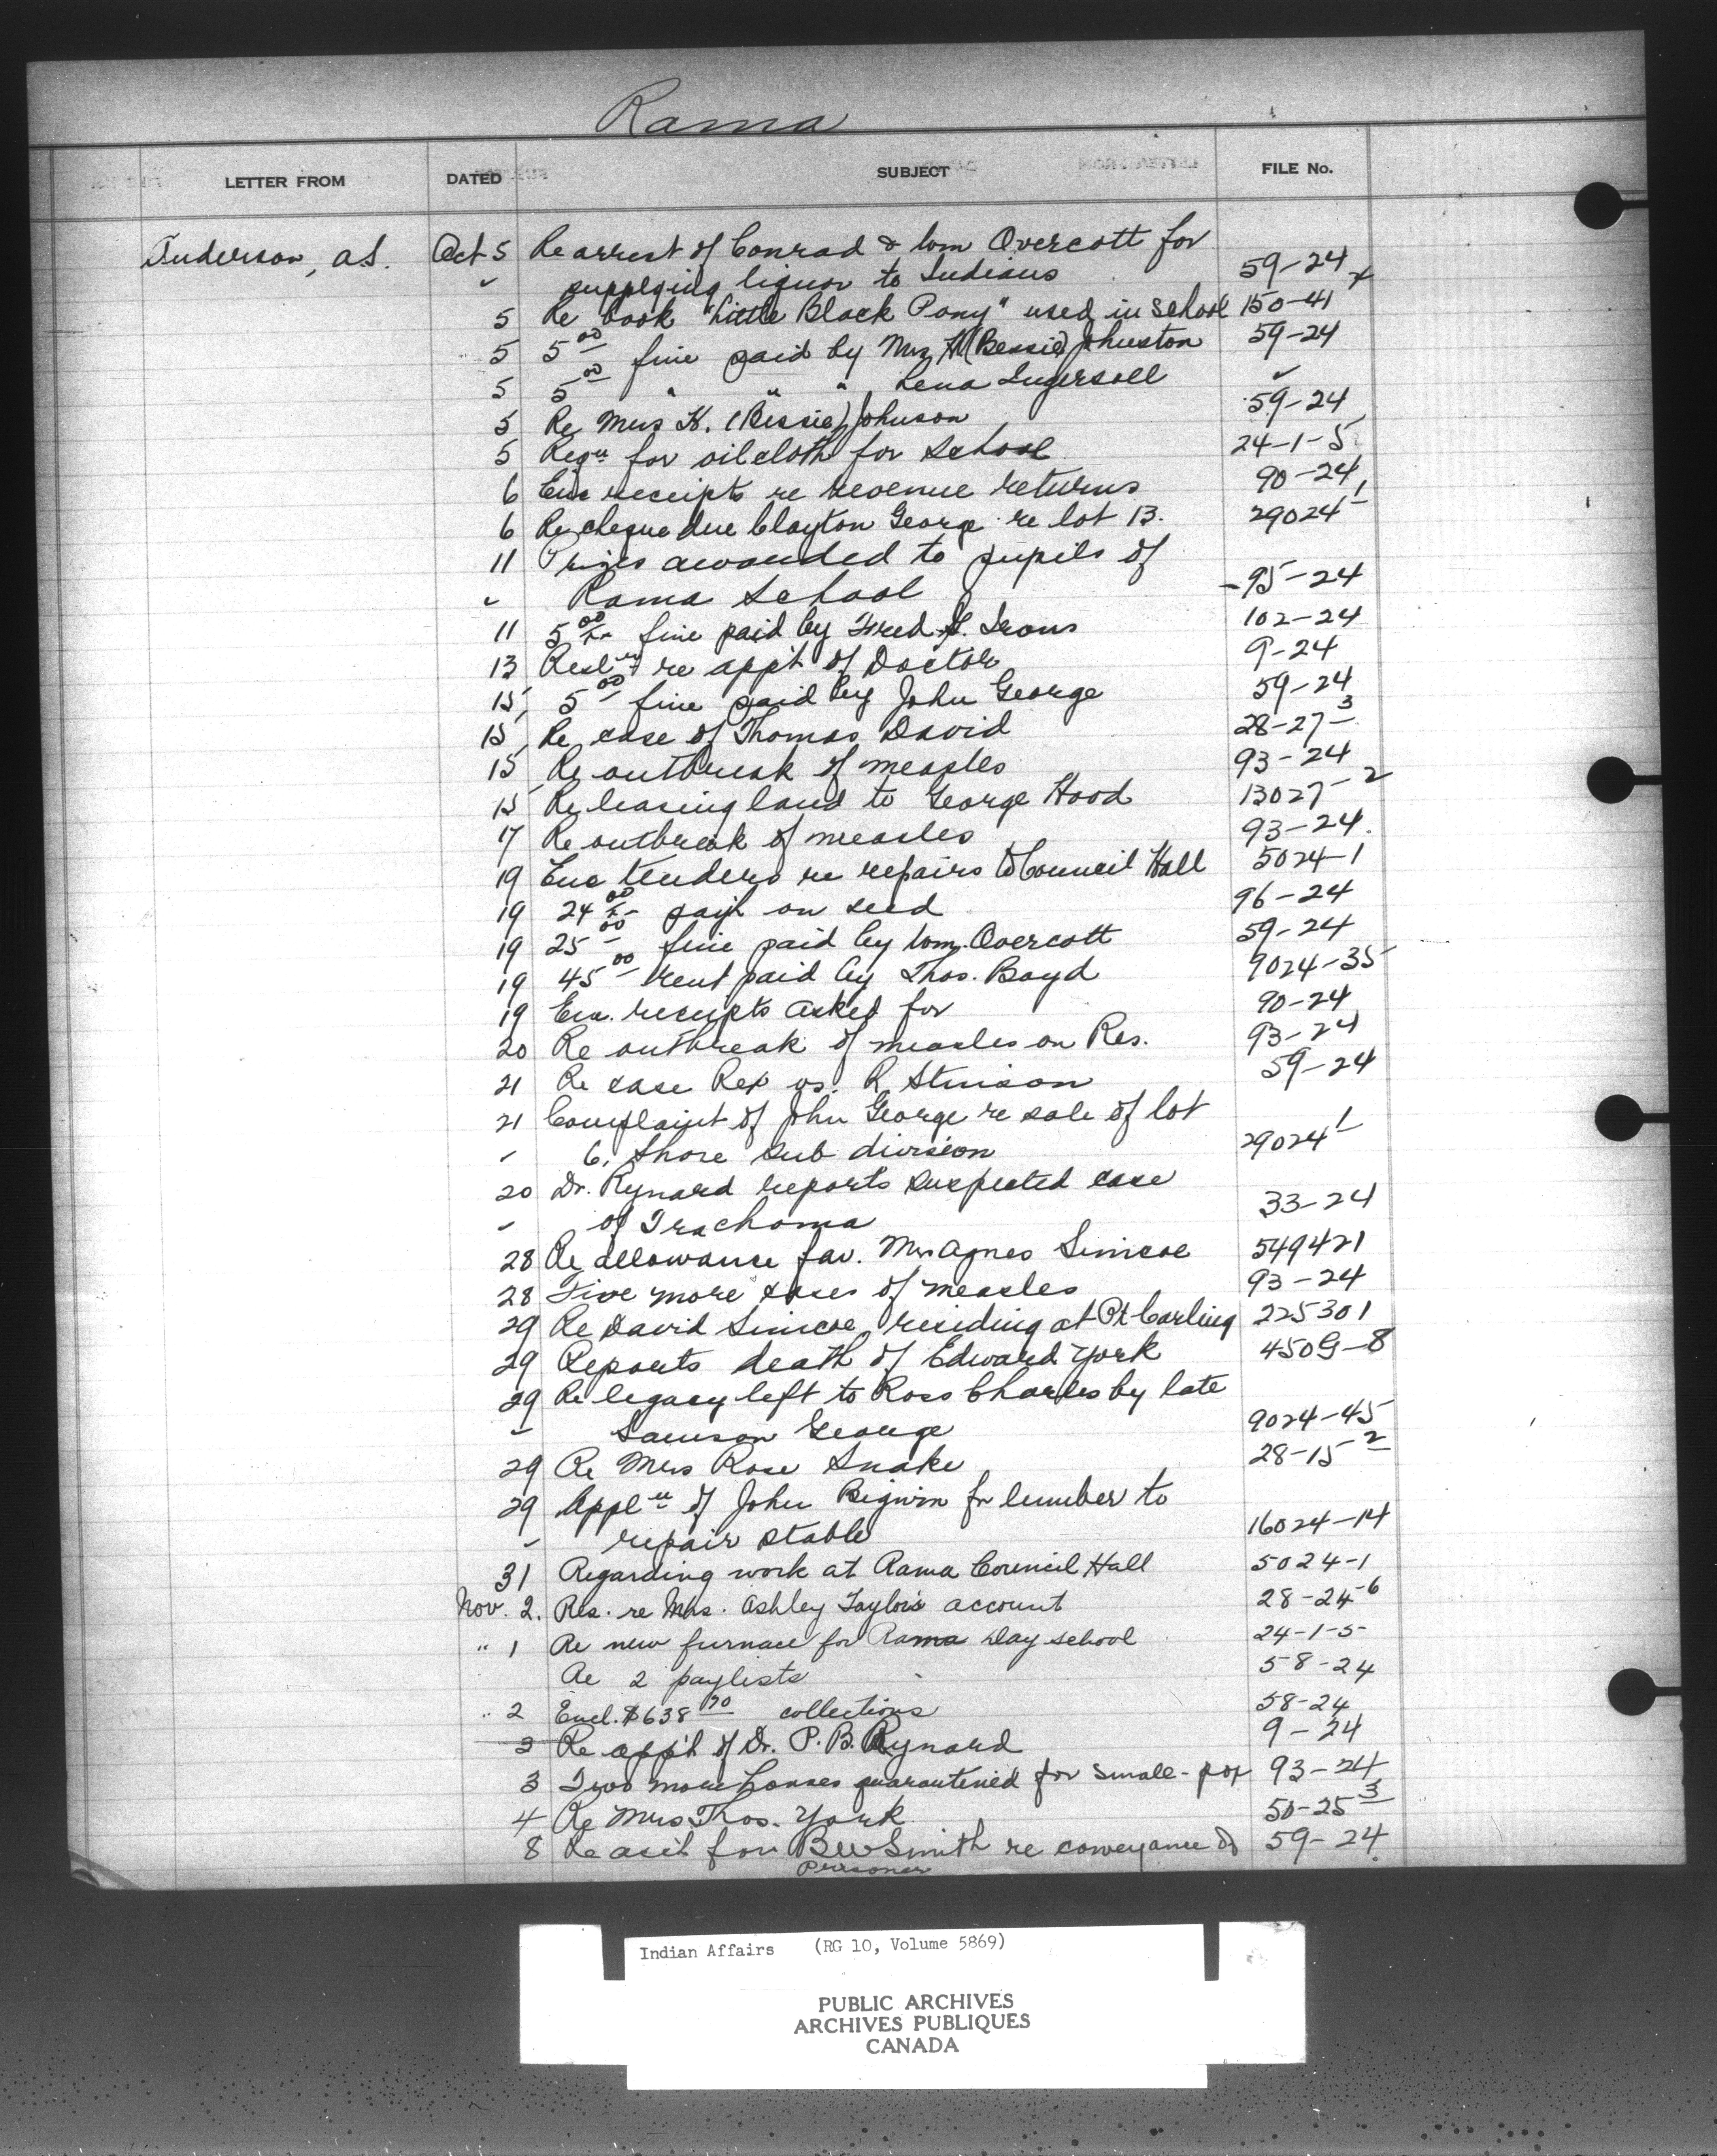 Rama
LETTER FROM DATED SUBJECT FILE No.
Anderson, A.S. Oct 5 Re arrest of Conrad & Wm Overcott for
" supplying liquor to Indians 59-24
5 Re book "Little Black Pony" used in School 150-41
5 5 00 fine paid by Mrs H (Bessie) Johnston 59-24
5 5 00 " " " Lena Ingersoll "
5 Re Mrs H. (Bessie) Johnson 59-24
5 Reqn for oilcloth for School 24-1-5
6 Enc receipts re revenue returns 90-24
6 Re cheque due Clayton George re lot 13. 29024-1
11 Prizes awarded to pupils of
" Rama School -95-24
11 5 00 fine paid by Fred Irons 102-24
13 Resln re app't of Doctor 9-24
15 5 00 fine paid by John George 59-24
15 Re case of Thomas David 28-27-3
15 Re outbreak of measles 93-24
15 Re leasing land to George Hood 13027-2
17 Re outbreak of measles 93-24.
19 Enc tenders re repairs to Council Hall 5024-1
19 24 00 pay't on seed 96-24
19 25 00 fine paid by Wm. Overcott 59-24
19 45 00 rent paid by Thos. Boyd 9024-35
19 Enc. receipts asked for 90-24
20 Re outbreak of measles on Res. 93-24
21 Re case Rex vs. R. Stinson 59-24
21 Complaint of John George re sale of lot
" 6, Shore sub division 29024-1
20 Dr. Rynard reports suspected case
" of Trachoma 33-24
28 Re allowance fav. Mrs Agnes Simcoe 549421
28 Five more cases of measles 93-24
29 Re David Simcoe residing at Pt Carling 225301
29 Reports death of Edward York 450G-8
29 Re legacy left to Ross Charles by late
" Samson George 9024-45
29 Re Mrs Rose Snake 28-15-2
29 Appln of John Bigwin for lumber to
" repair stable 16024-14
31 Regarding work at Rama Council Hall 5024-1
Nov. 2. Res. re Mrs. Ashley Taylor's account 28-24-6
" 1 Re new furnace for Rama Day school 24-1-5-
Re 2 paylists 58-24
" 2 Encl. $638 70 collections 58-24
2 Re app't of Dr. P. B. Rynard 9-24
3 Two more houses quarantined for small-pox 93-24
4 Re Mrs Thos. York 50-25-3
8 Re acct for BW Smith re conveyance of 59-24.
Prisoner
Indian Affairs (RG 10, Volume 5869)
PUBLIC ARCHIVES
ARCHIVES PUBLIQUES
CANADA